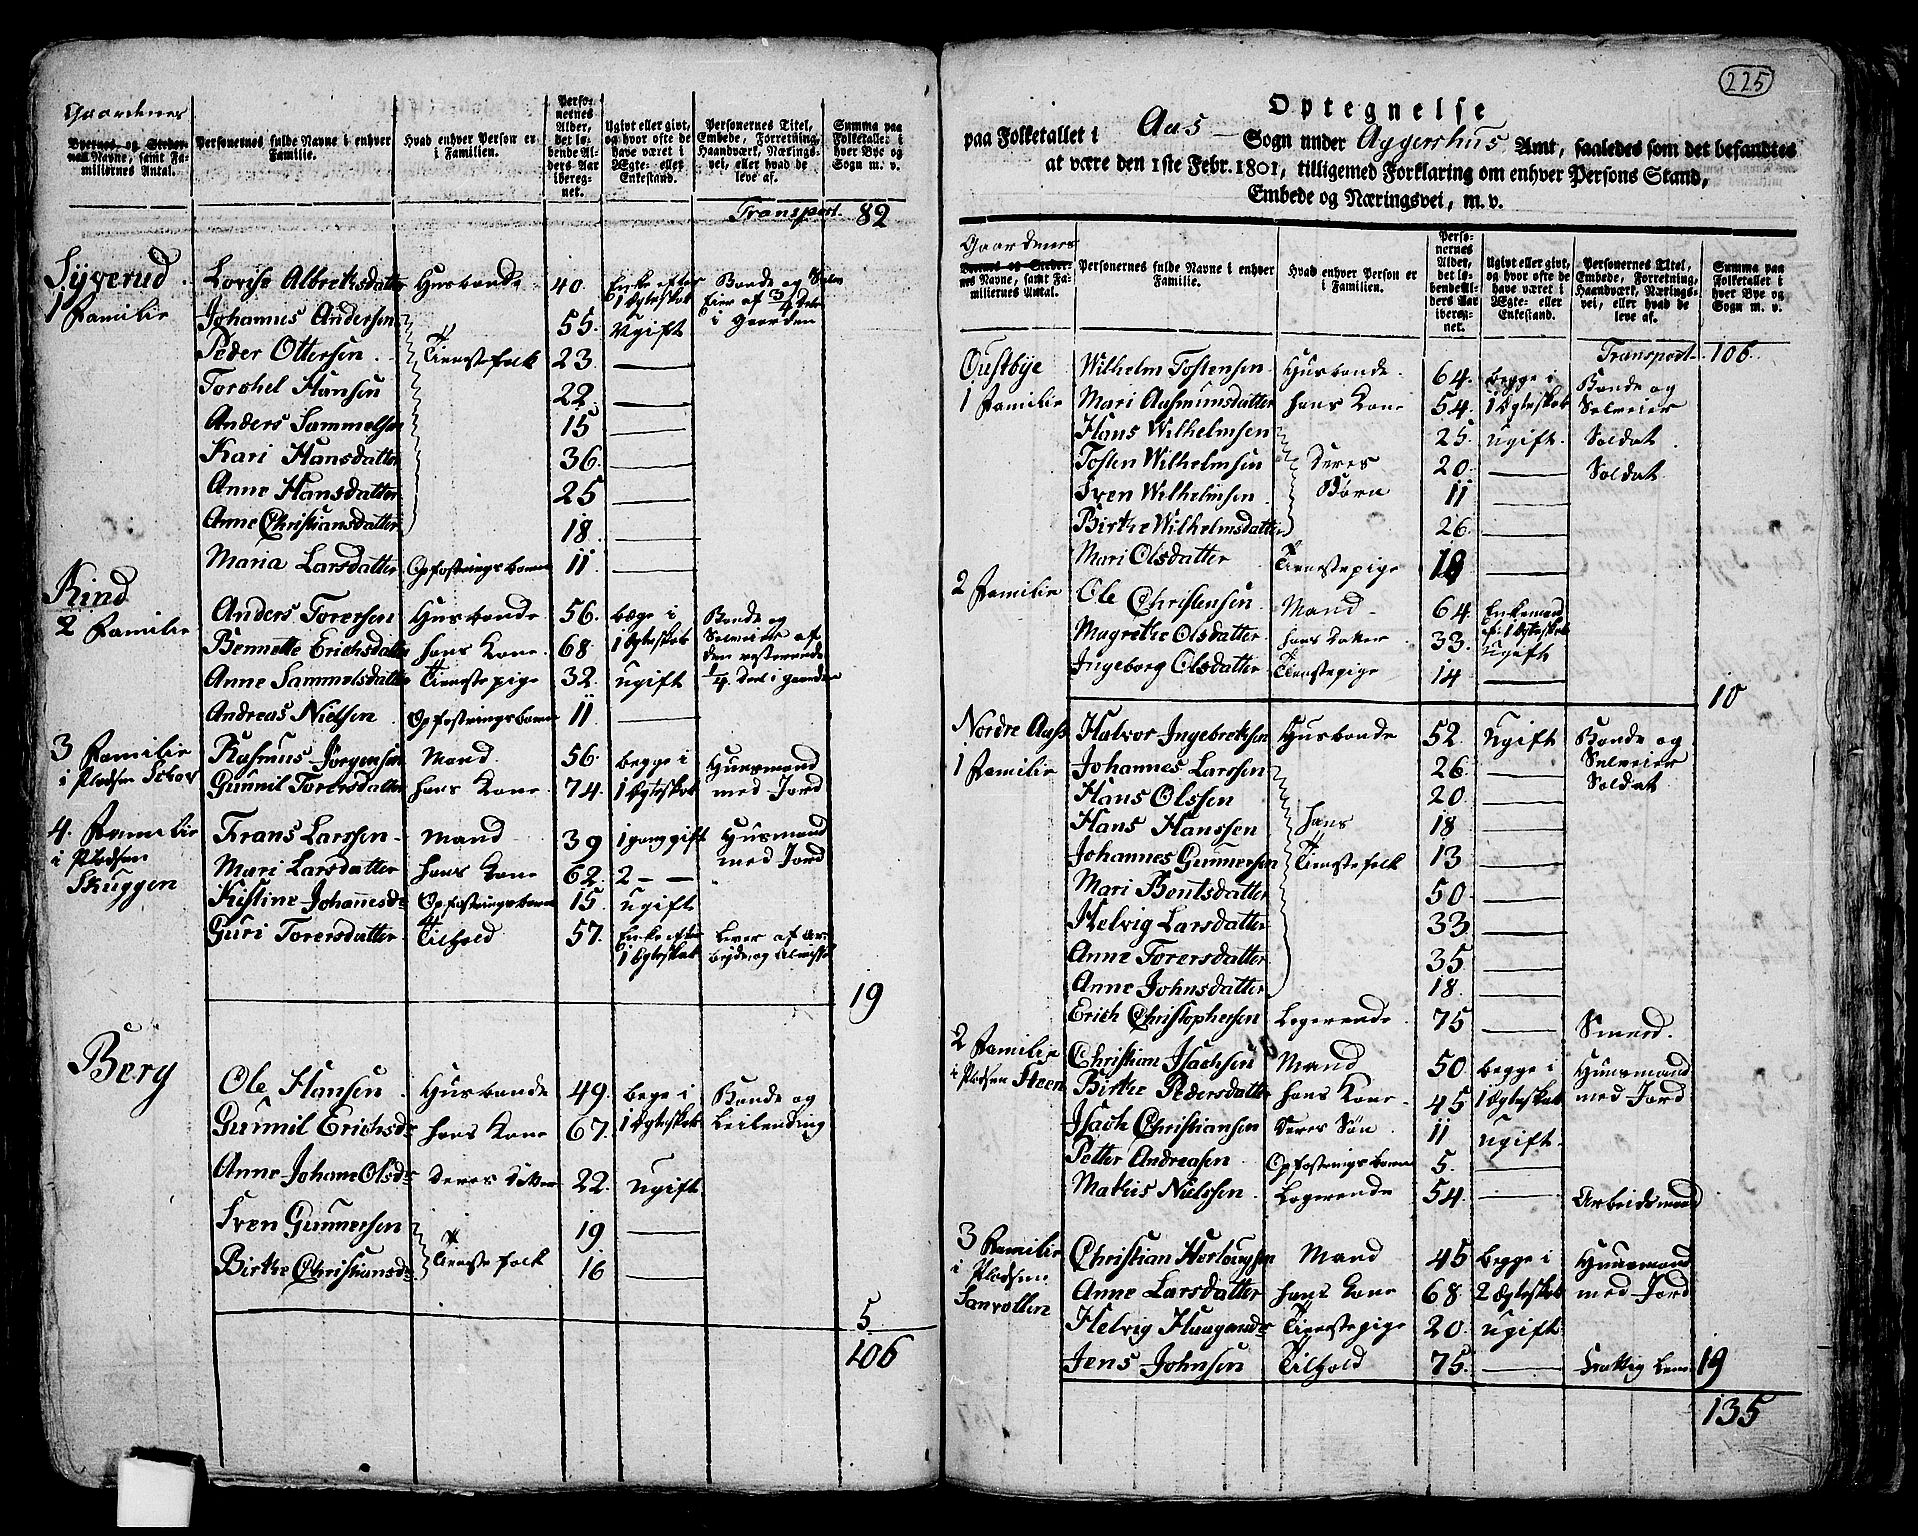 Gaardenes
Byernes og Stedernes Navne, samt Familiernes Antal. | Personernes fulde Navne i enhver Familie. | Hvad enhver Person er i Familien. | Personernes Alder, det løbende Alders Aar iberegnet. | Ugivt eller givt, og hvor ofte de have været i Ægte- eller Enkestand. | Personernes Titel, Embede, Forretning, Haandværk, Næringsvei, eller hvad de leve af. | Summa paa Folketallet i hver Bye og Sogn m. v.
Transport 82
Sÿgerud Lovise Albrektsdatter Husbonde 40 Enke efter 1 Egteskab Bonde og Selv Eier af 3/4 Deel i Gaarden
1 Familie Johannes Andersen 55 Ugift
Peder Ottersen Tienestefolk 23 —
Torshel Hansen 22 —
Anders Sammelsen 15 —
Kari Hansdatter 36 —
Anne Hansdatter 25 —
Anne Christiansdatter 18 —
Maria Larsdatter Opfostringsbarn 11 —
Rind
2 Familie Anders Torersen Husbonde 56 bege i Bonde og
Bennette Erichsdatter hans Kone 68 1 Egteskab Selveier af den resterende
Anne Sammelsdatter Tienestepige 32 ugift 1/4 Deel i gaarden
Andreas Nielsen Opfostringsbarn 11 —
3 Familie Rasmus Jørgensen Mand 56 begge i Huusmand
i Pladsen Gunnil Torersdatter hans Kone 74 1 Egteskab med Jord
4 Familie Frans Larssen Mand 39 1 gang gift Husmand
i Pladsen Mari Larsdatter hans Kone 62 2 — — med Jord
Skuggen Kistine Johannesdr Opfostringsbarn 15 ugift
Guri Torersdatter Tilhold 57 Enke efter 1 Egteskab Lever af Arbeyde og Almisse
19
Berg
Ole Hansen Husbonde 49 bege i Bonde og
Gunnil Erichsdr hans Kone 67 1 Egteskab Leilending
Anne Johane Olsdr deres datter 22 ugift
Sven Gunnersen Tienestefolk 19 —
Birthe Christiansdr 16 —
5
106
225
Optegnelse
paa Folketallet i Aas Sogn under Aggershus Amt, saaledes som det befandtes
at være den 1ste Febr. 1801, tilligemed Forklaring om enhver Persons Stand,
Embede og Næringsvei, m. v.
Gaardenes
Byernes og Stedernes Navne, samt Familiernes Antal. | Personernes fulde Navne i enhver Familie. | Hvad enhver Person er i Familien. | Personernes Alder, det løbende Alders Aar iberegnet. | Ugivt eller givt, og hvor ofte de have været i Ægte- eller Enkestand. | Personernes Titel, Embede, Forretning, Haandværk, Næringsvei, eller hvad de leve af. | Summa paa Folketallet i hver Bye og Sogn m. v.
Transport 106
Oustbÿe Wilhelm Tostensen Husbonde 64 begge i Bonde og
1 Familie Mari Aasmunsdatter hans Kone 54 1 Egteskab Selveier
Hans Wilhelmsen 25 ugift Soldat
Tosten Wilhelmsen Deres 20 — Soldat
Sven Wilhelmsen Børn 11 —
Birthe Wilhelmsdatter 26 —
Mari Olsdatter Tienestepige 18 —
2 Familie Ole Christensen Mand 64 Enkemand
Magrethe Olsdatter hans datter 33 1 Egteskab ugift
Ingeborg Olsdatter Tienestepige 14 —
10
Nordre Aass Halvor Ingebretsen Husbonde 52 Ugift Bonde og Selveier
1 Familie Johannes Larssen 26 — Soldat
Hans Olssen 20 —
Hans Hanssen hans 18 —
Johannes Gunnersen Tienestefolk 13 —
Mari Bentsdatter 50 —
Helvig Larsdatter 33 —
Anne Torersdatter 35 —
Anne Johnsdatter 18 —
Erich Christophersen Logerende 75 — Smed
2 Familie Christian Isachsen Mand 50 begge i Huusmand
i Pladsen Steen Birthe Pedersdatter hans Kone 45 1 Egteskab med Jord
Isach Christiansen Deres Søn 11 ugift
Petter Andreasen Opfostringsbarn 5 —
Mathis Nielssen Logerende 54 — Arbeidsmand
3 Familie Christian Herlougsen Mand 45 begge i Huusmand
i Pladsen Anne Larsdatter hans Kone 68 2 Egteskab med Jord
Helvig Haagensdr Tienestepige 20 ugift
Jens Johnsen Tilhold 75 — Fattig Lem 19
135